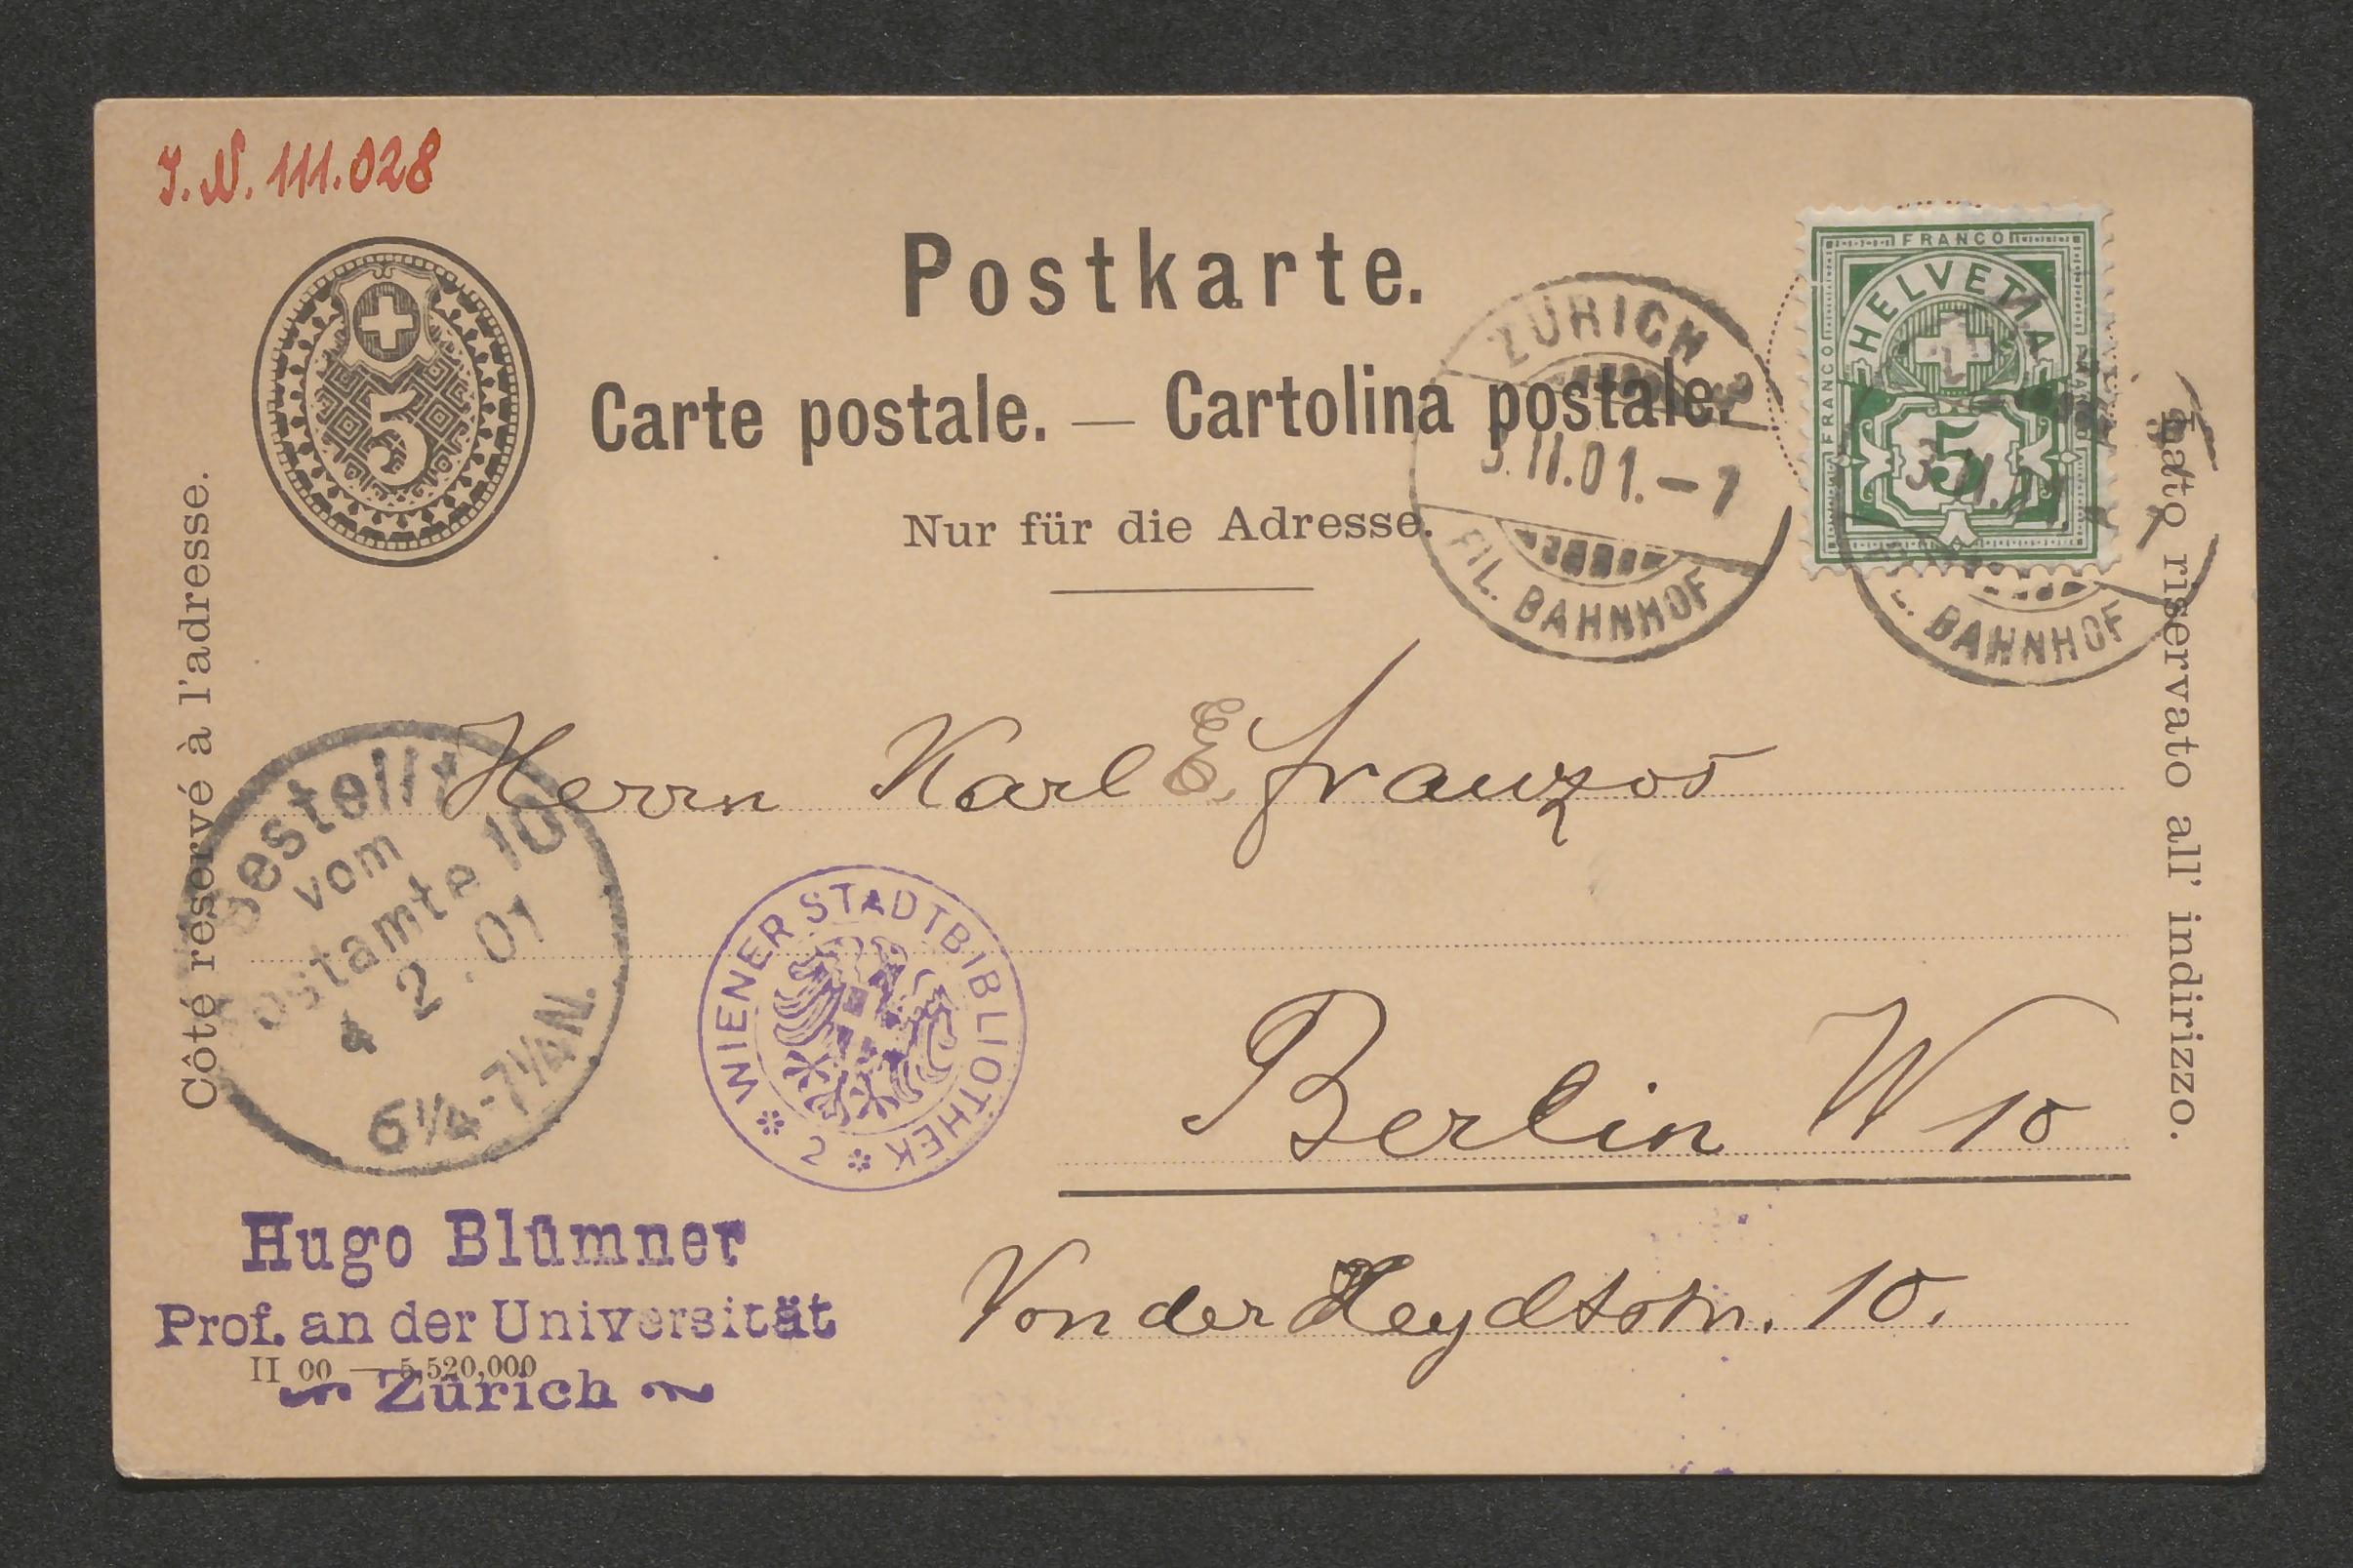 J.N. 111.028
5
Postkarte.
Carte postale. — Cartolina postale.
Nur für die Adresse.
Côté réservé à l'adresse.
Lato riservato all' indirizzo.
FRANCO
FRANCO
HELVETIA
5
ZÜRICH
3.II.01.-7
FIL. BAHNHOF
3.II.
BAHNHOF
Herrn Karl E. Franzos
Bestellt
vom
Postamte 10
4 2.01
6¼-7¼N.
WIENER STADTBIBLIOTHEK
2
Berlin W 10
Von der Heydtstr. 10.
Hugo Blümner
Prof. an der Universität
II 00 — 5,520,000
Zürich